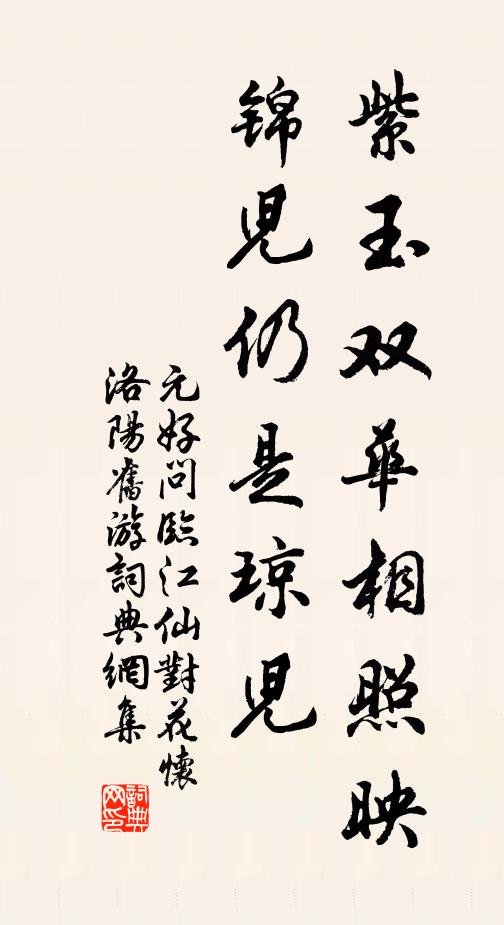 紫玉双華相照映
錦児仍是琼児
元好问臨江仙對花懷
洛陽舊游詞典網集
詞典网印